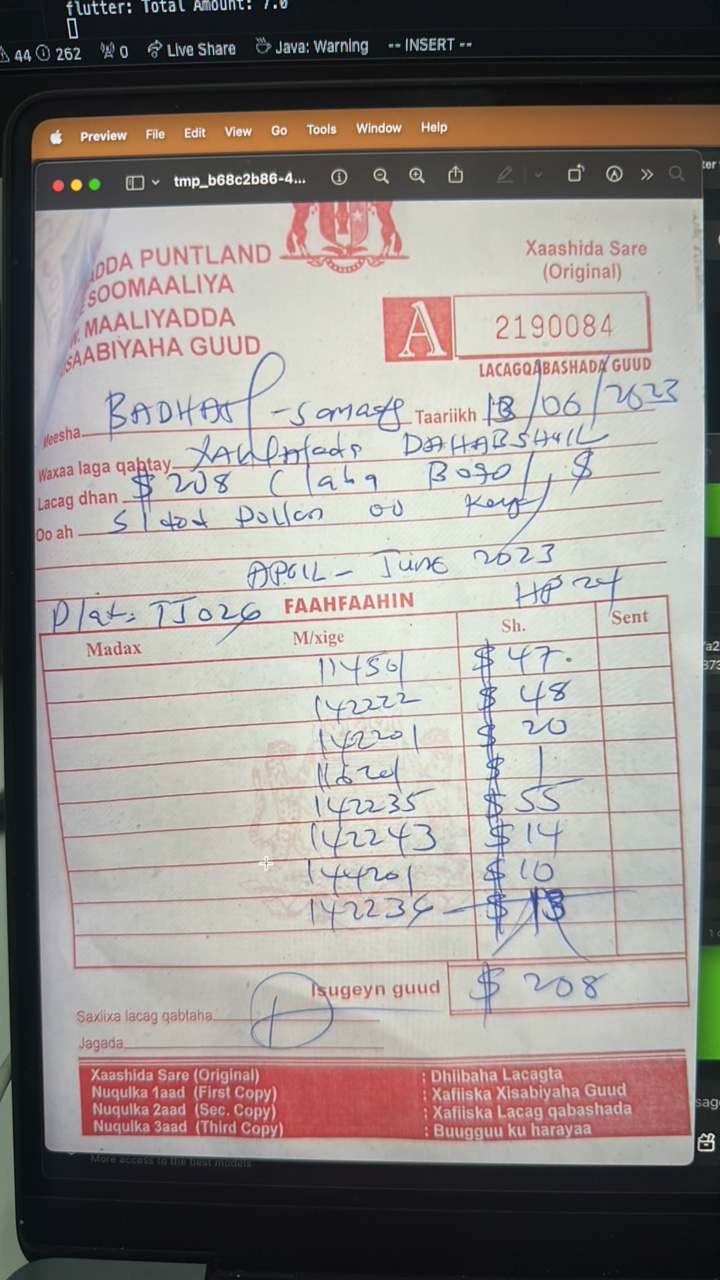 flutter: Total Amount: 7.0
44 262 0 Live Share Java: Warning -- INSERT --
Preview File Edit View Go Tools Window Help
tmp_b68c2b86-4...
ADDA PUNTLAND
SOOMAALIYA
MAALIYADDA
SAABIYAHA GUUD
Xaashida Sare
(Original)
A 2190084
LACAGQABASHADA GUUD
Meesha Taariikh 13/06/2023
Waxaa laga qabtay DAHABSHIIL
Lacag dhan $ 208
Oo ah Dollar oo
APRIL - June 2023
Plat: TJ026 FAAHFAAHIN HP 24
Madax M/xige Sh. Sent
114501 $ 47
142222 $ 48
142201 $ 20
$ 1
142235 $ 55
142243 $ 14
144201 $ 10
142234 $ 13
Isugeyn guud $ 208
Saxiixa lacag qabtaha
Jagada
Xaashida Sare (Original) : Dhiibaha Lacagta
Nuqulka 1aad (First Copy) : Xafiiska Xisabiyaha Guud
Nuqulka 2aad (Sec. Copy) : Xafiiska Lacag qabashada
Nuqulka 3aad (Third Copy) : Buugguu ku harayaa
More access to the best models